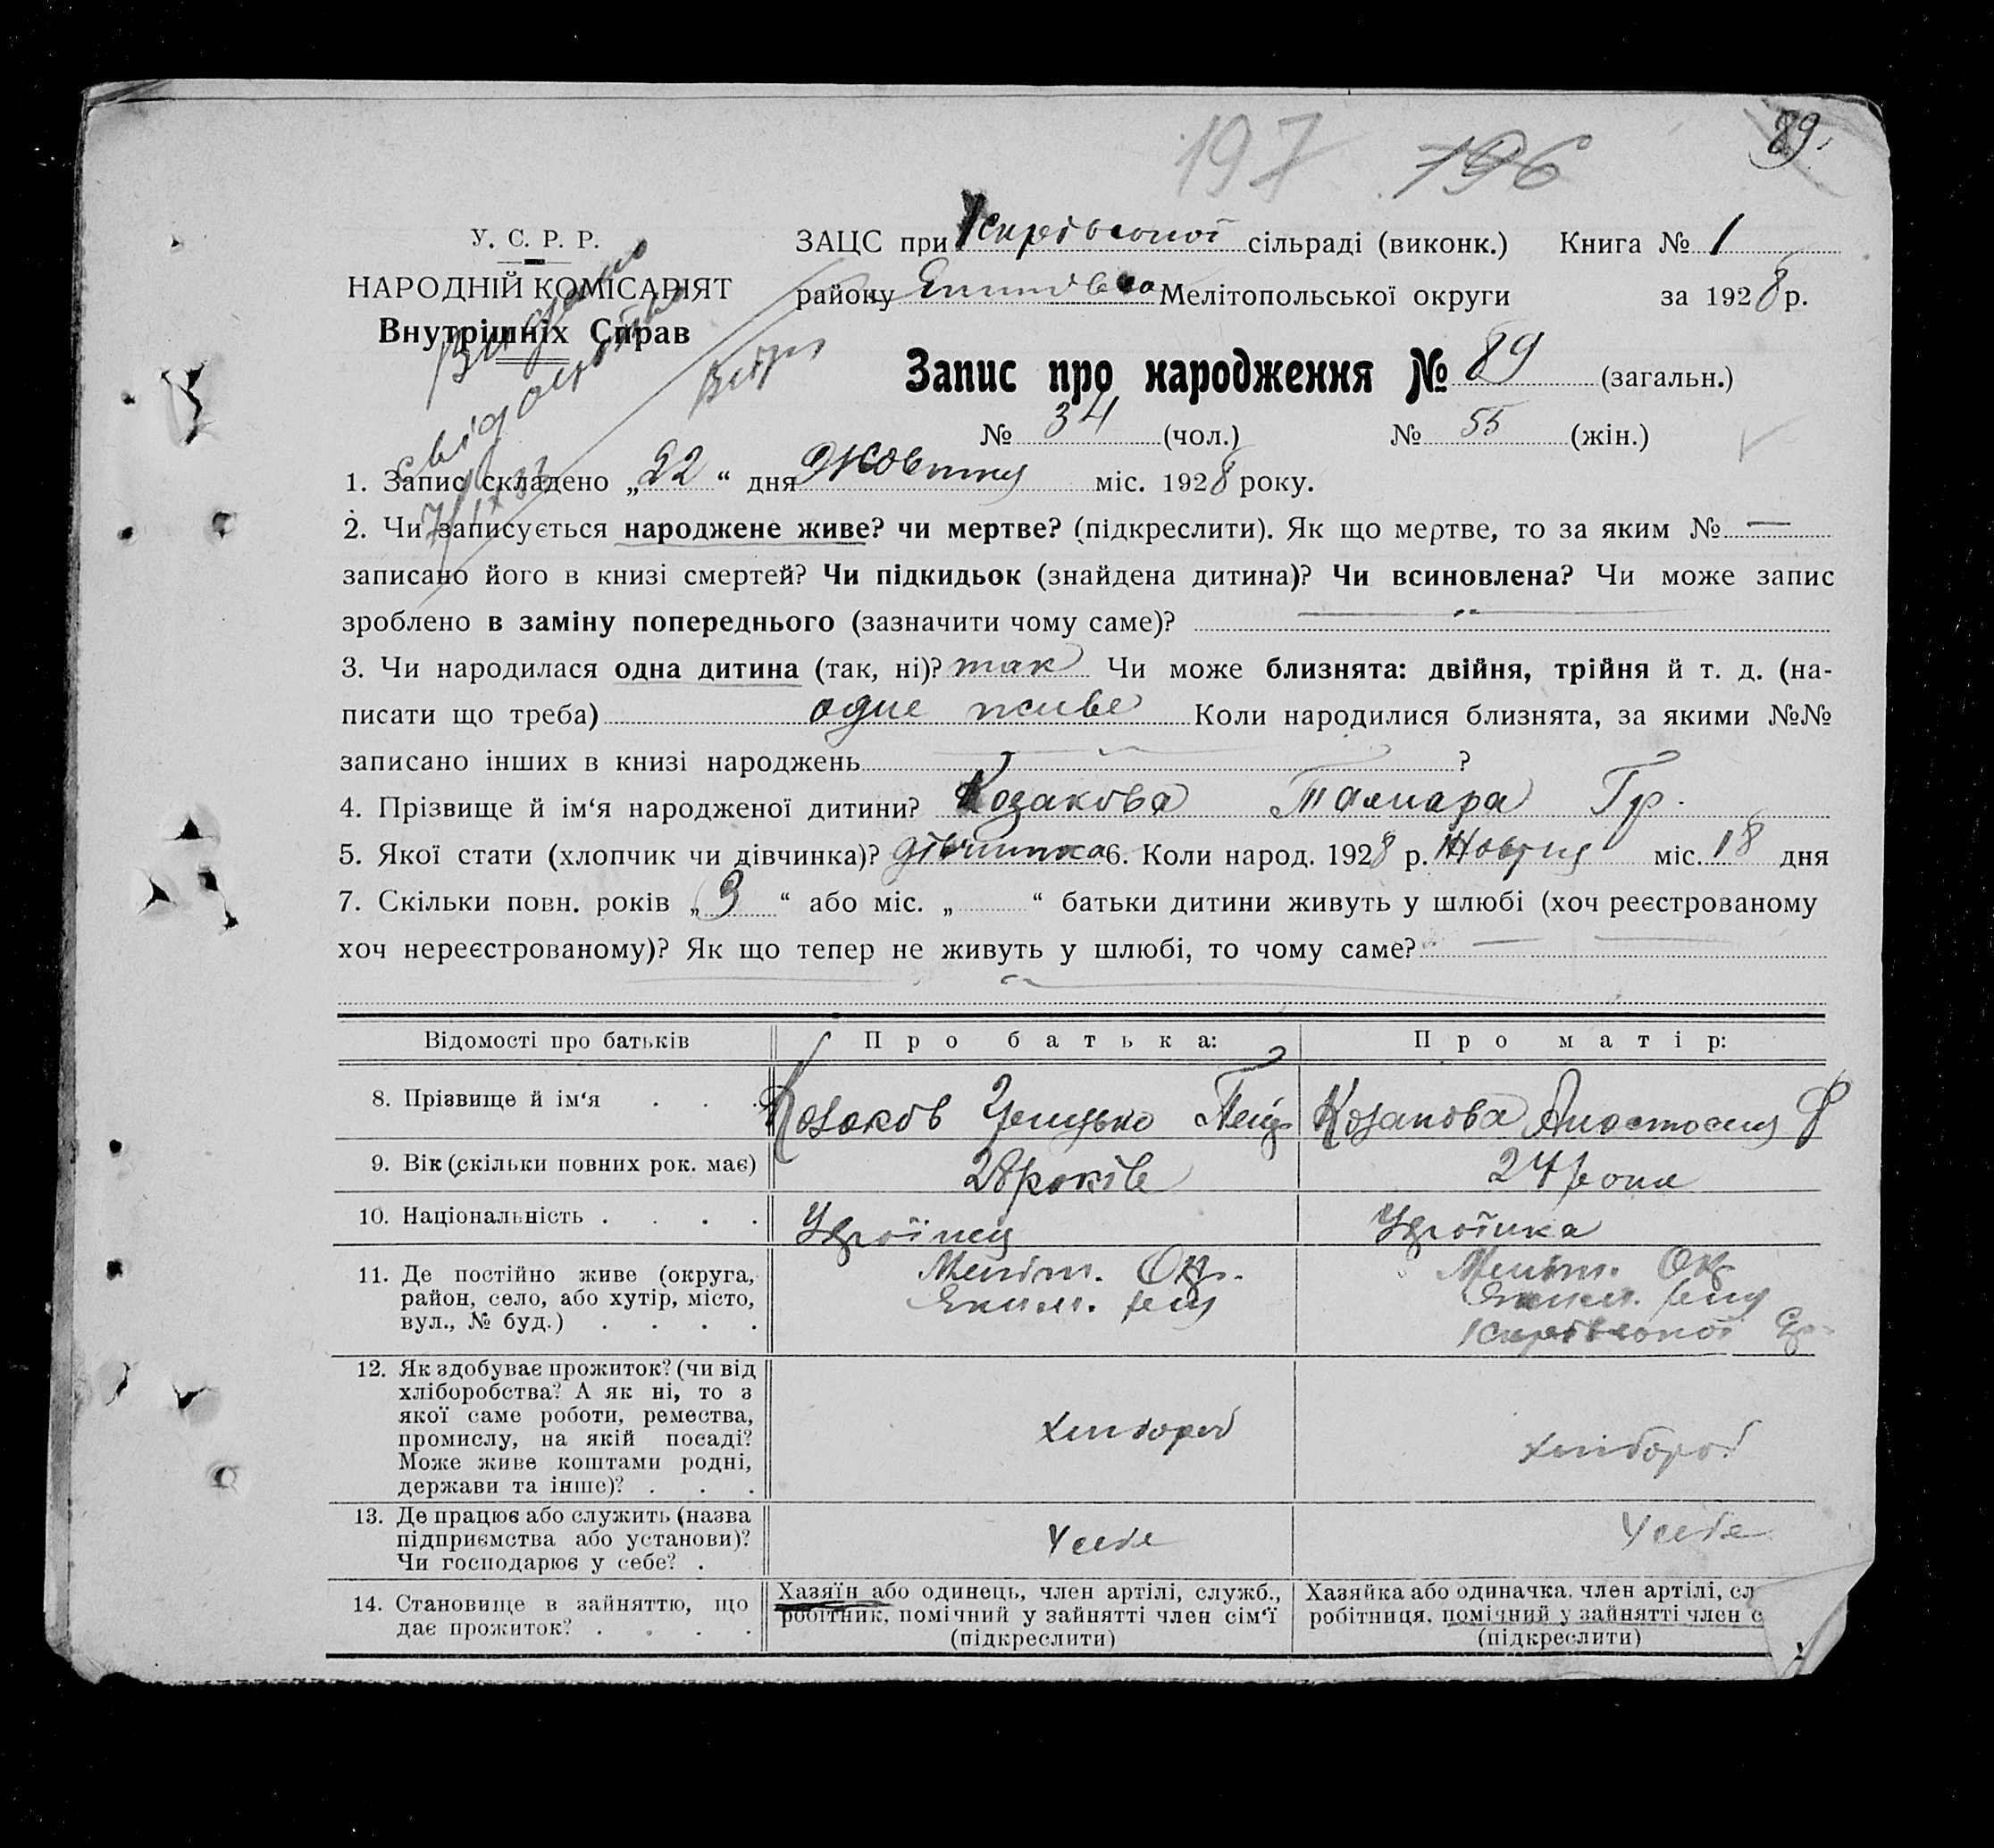 197 196 89.
У. С. Р. Р.
НАРОДНІЙ КОМІСАРІЯТ
Внутрішніх Справ
Видано
свідоцтво
ЗАЦС при Кирівської сільраді (виконк.) Книга № 1
району Мелітопольської округи за 1928 р.
Запис про народження № 89 (загальн.)
№ 34 (чол.) № 55 (жін.)
1. Запис складено „22“ дня Жовтня міс. 1928 року.
2. Чи записується народжене живе? чи мертве? (підкреслити). Як що мертве, то за яким № —
записано його в книзі смертей? Чи підкидьок (знайдена дитина)? Чи всиновлена? Чи може запис
зроблено в заміну попереднього (зазначити чому саме)?
3. Чи народилася одна дитина (так, ні)? так Чи може близнята: двійня, трійня й т. д. (на-
писати що треба) одне живе Коли народилися близнята, за якими №№
записано інших в книзі народжень ?
4. Прізвище й ім‘я народженої дитини? Козакова Тамара Гр.
5. Якої стати (хлопчик чи дівчинка)? дівчинка 6. Коли народ. 1928 р. Жовтня міс. 18 дня
7. Скільки повн. років „3“ або міс. „ “ батьки дитини живуть у шлюбі (хоч реєстрованому
хоч нереєстрованому)? Як що тепер не живуть у шлюбі, то чому саме? —
Відомості про батьків Про батька: Про матір:
8. Прізвище й ім‘я . . . Козаков Грицько Козакова Анастасия Ф
9. Вік (скільки повних рок. має) 28 років 24 роки
10. Національність . . . . Українец Українка
11. Де постійно живе (округа,
район, село, або хутір, місто,
вул., № буд.) . . . .
Меліт. Окр.
Яким. рец
Меліт. Ок
Яким. рец
Кирівської
12. Як здобуває прожиток? (чи від
хліборобства? А як ні, то з
якої саме роботи, ремества,
промислу, на якій посаді?
Може живе коштами родні,
держави та інше)? . . .
хлібороб хлібороб
13. Де працює або служить (назва
підприємства або установи)?
Чи господарює у себе? .
У себе У себе
14. Становище в зайняттю, що
дає прожиток? . . . .
Хазяїн або одинець, член артілі, служб.,
робітник, помічний у зайнятті член сім‘ї
(підкреслити)
Хазяйка або одиначка, член артілі, сл
робітниця, помічний у зайнятті член с
(підкреслити)